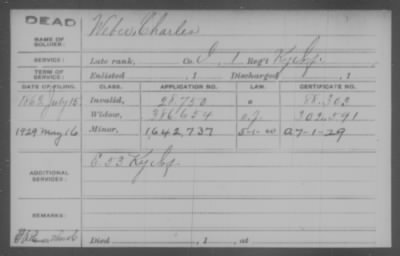 DEAD
NAME OF SOLDIER: Weber, Charles
SERVICE: Late rank, Co. I, 1 Reg't Ky Inf.
TERM OF SERVICE: Enlisted , 1 Discharged , 1
DATE OF FILING. CLASS. APPLICATION NO. LAW. CERTIFICATE NO.
1863 July 15 Invalid, 28.750 a 88.302
Widow, 386654 o.g. 302,591
1929 May 16 Minor, 1642,737 5-1-20 a7-1-29
ADDITIONAL SERVICES: C. 53 Ky Inf.
REMARKS:
Died , 1 , at